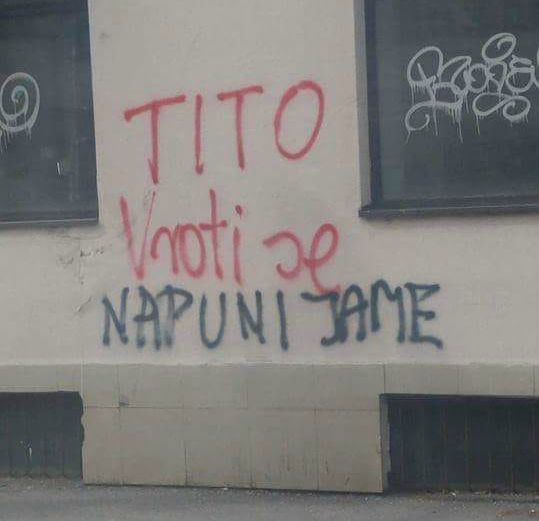 TITO
Vrati se
NAPUNI JAME